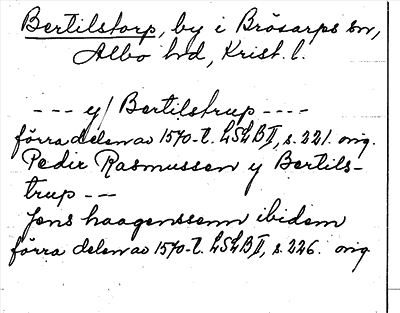 Bertilstorp, by i Brösarps sn,
Albo hd, Krist. l.
--- y/ Bertilstrup ----
förra delen av 1570-t. LSLB II, s. 221. orig.
Pedir Rasmussen y Bertils-
trup ---
Jens haagenssenn ibidem
förra delen av 1570-t. LSLB II, s. 226. orig